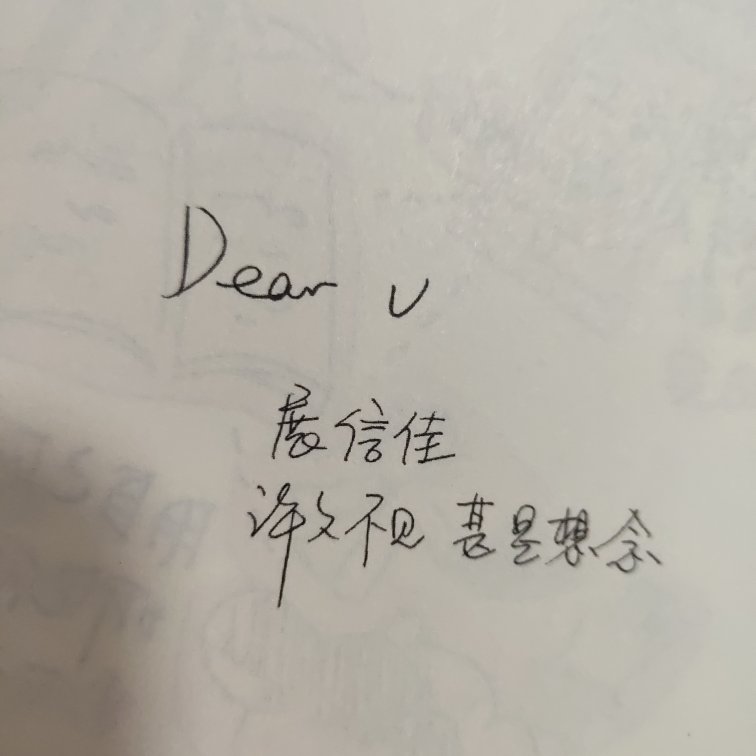 Dear u
展信佳
许久不见 甚是想念